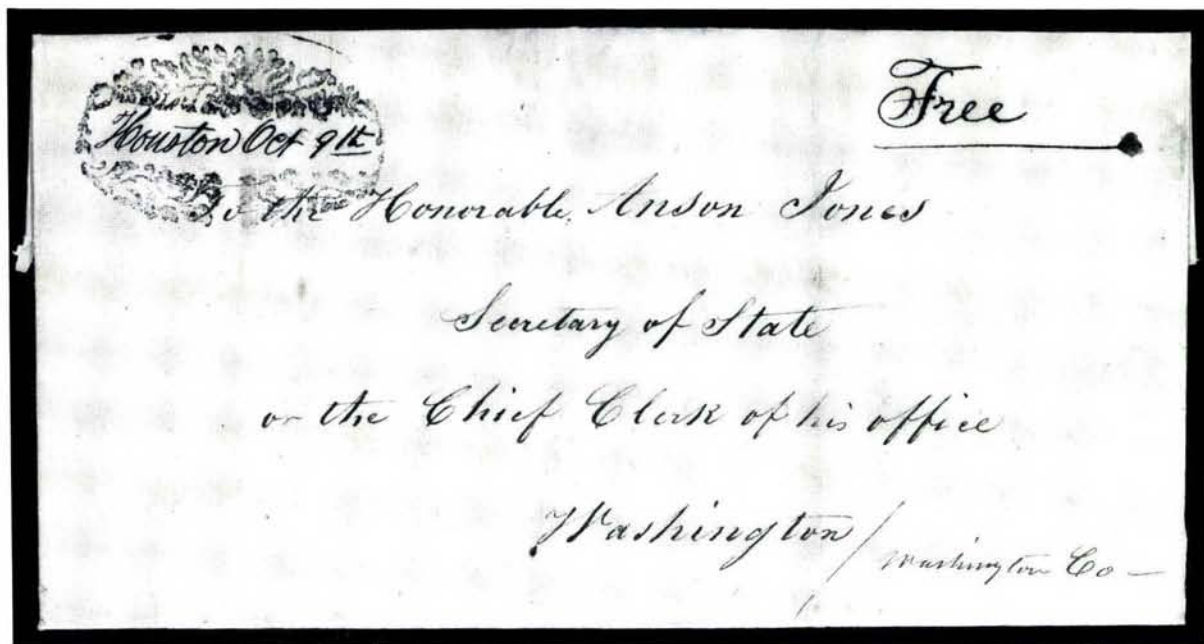 Free
Houston Oct 9th
To the Honorable Anson Jones
Secretary of State
or the Chief Clerk of his office
Washington / Washington Co —